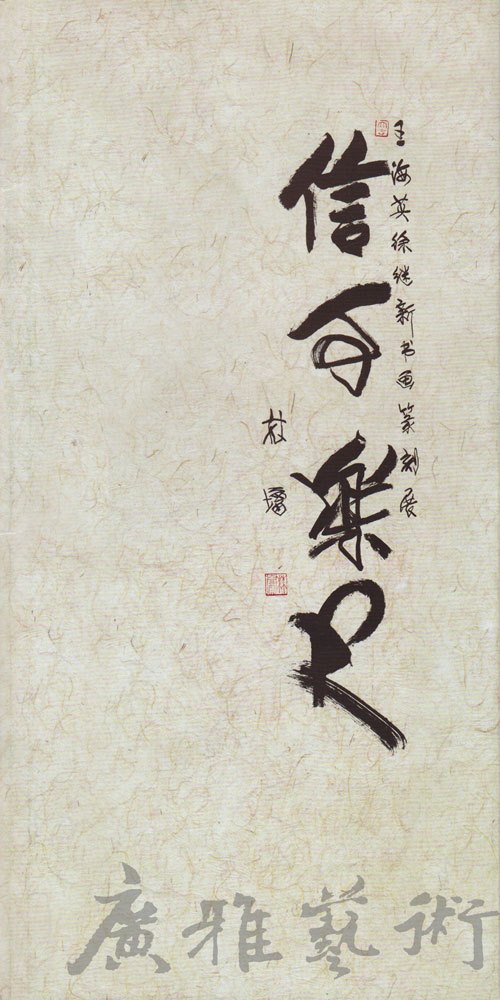 王海英徐继新书画篆刻展
信可樂也
林墉
廣雅藝術